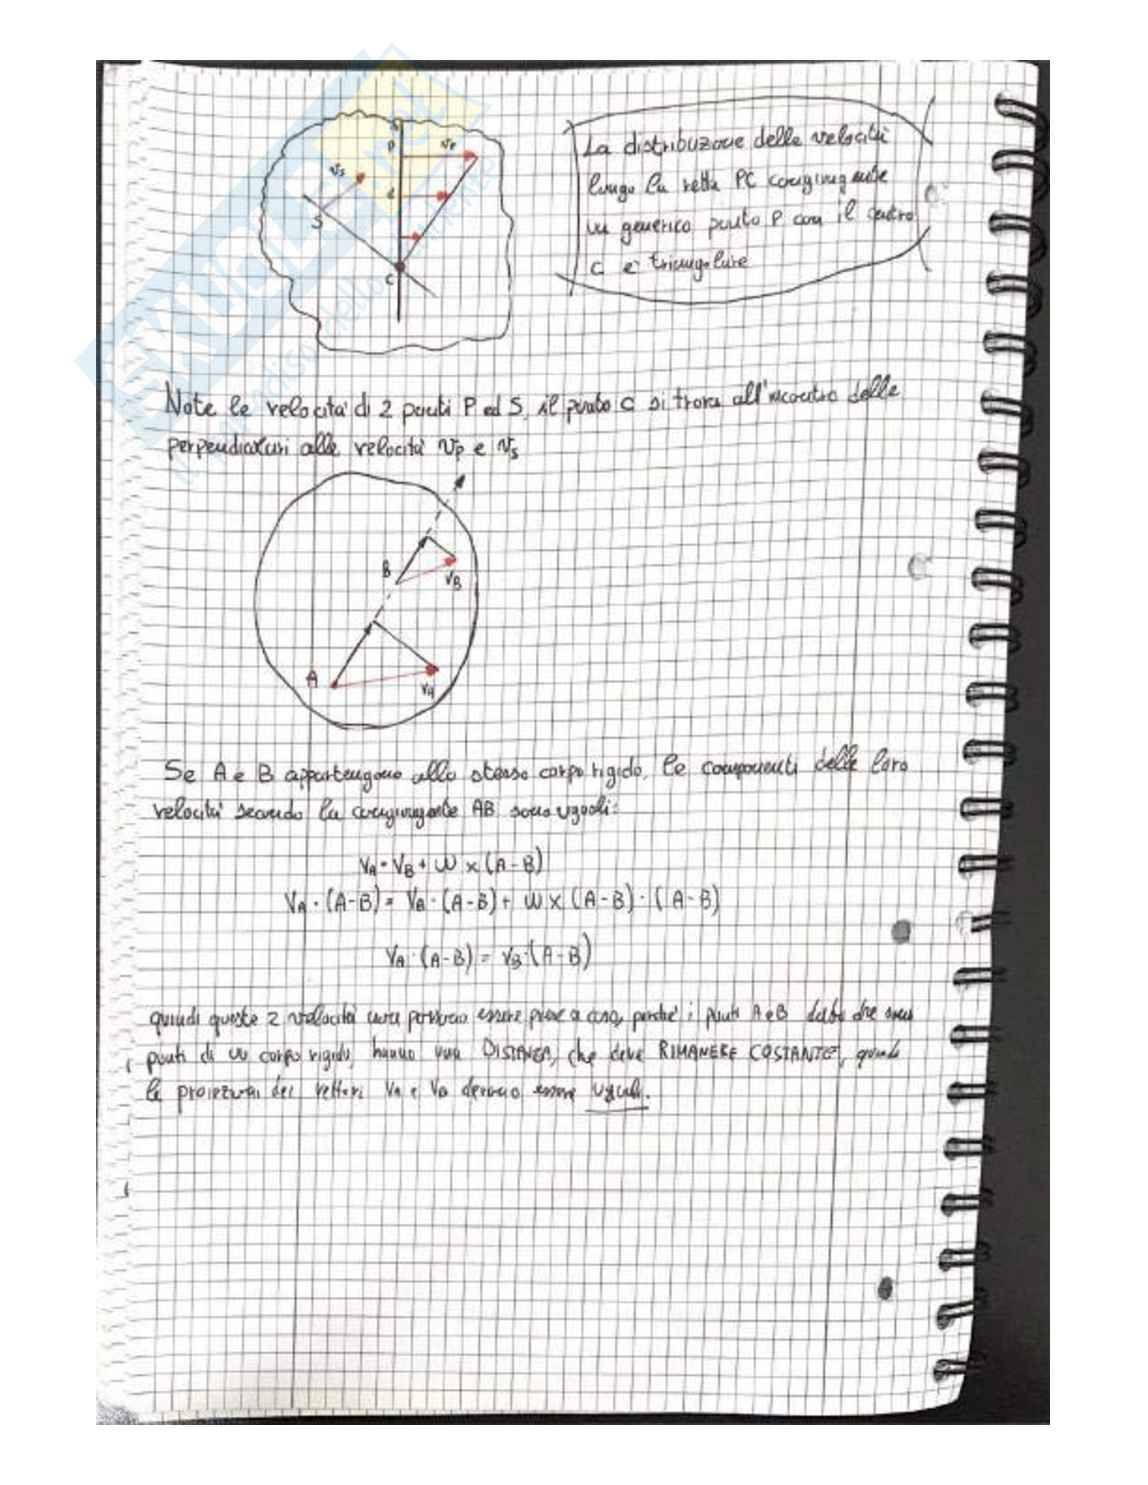 P
vP
vs
S
d
C
La distribuzione delle velocità
lungo la retta PC congiungente
un generico punto P con il centro
C è triangolare
Note le velocità di 2 punti P ed S, il punto C si trova all'incontro delle
perpendicolari alle velocità vP e vs
B
vB
A
vA
Se A e B appartengono allo stesso corpo rigido, le componenti delle loro
velocità secondo la congiungente AB sono uguali:
VA = VB + W × (A-B)
VA · (A-B) = VB · (A-B) + W × (A-B) · (A-B)
VA · (A-B) = VB · (A-B)
quindi queste 2 velocità non possono essere prese a caso, perché i punti A e B dato che sono
punti di un corpo rigido, hanno una DISTANZA, che deve RIMANERE COSTANTE, quindi
le proiezioni dei vettori VA e VB devono essere uguali.